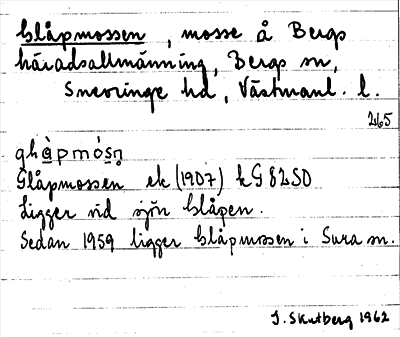 Glåpmossen, mosse å Bergs
häradsallmänning, Bergs sn,
Snevringe hd, Västmanl. l.
265
Glåpmossen ek (1907) kG 82SO
Ligger vid sjön Glåpen.
Sedan 1959 ligger Glåpmossen i Sura sn.
J. Skutberg 1962